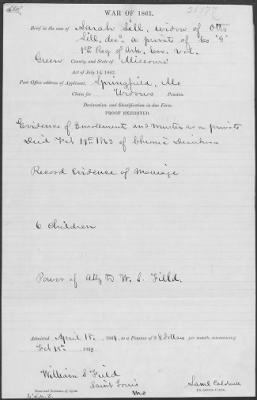 WAR OF 1861.
Brief in the case of Sarah Sill, widow of Otho
Sill, dec'd a private of Co "G"
1st Reg of Ark. Cav. Vol.
Green County, and State of Missouri
Act of July 14, 1862.
Post Office address of Applicant, Springfield, Mo
Claim for Widows Pension.
Declaration and Identification in due Form.
PROOF EXHIBITED.
Evidence of Enrollment and Muster as a private
Died Feb 18th 1863 of Chronic Diarrhoea
Record Evidence of Marriage
6 Children
Power of Atty to W. S. Field.
Admitted April 18, 1864, to a Pension of $8 Dollars per month, commencing
Feb 18th 1863
William S Field
Saint Louis
Mo
Name and Residence of Agent.
Saml Caldwell
EXAMINING CLERK.